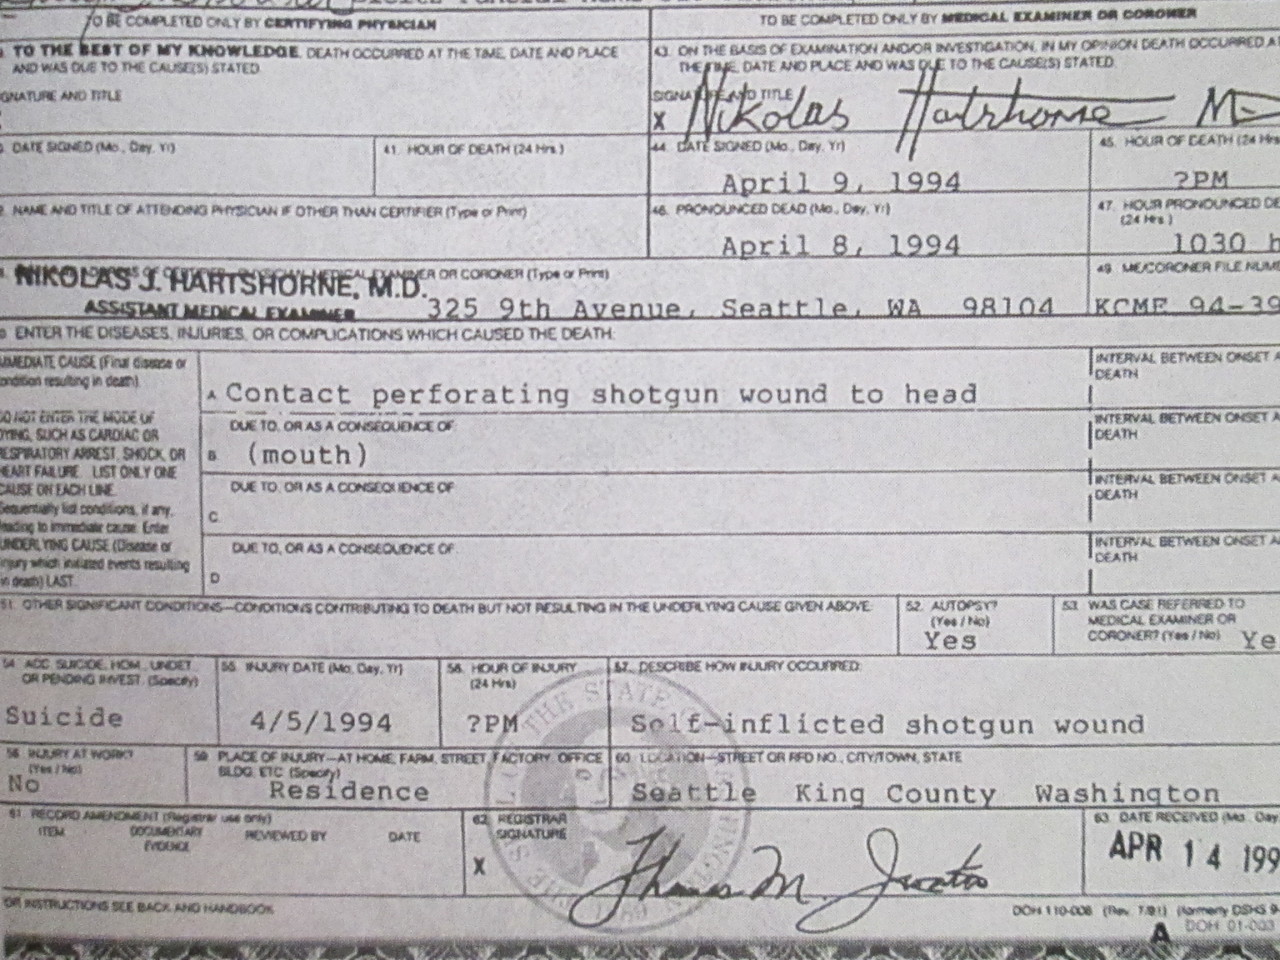 TO BE COMPLETED ONLY BY CERTIFYING PHYSICIAN
TO THE BEST OF MY KNOWLEDGE, DEATH OCCURRED AT THE TIME, DATE AND PLACE
AND WAS DUE TO THE CAUSE(S) STATED.
GNATURE AND TITLE
DATE SIGNED (Mo., Day, Yr)
41. HOUR OF DEATH (24 Hrs.)
NAME AND TITLE OF ATTENDING PHYSICIAN IF OTHER THAN CERTIFIER (Type or Print)
TO BE COMPLETED ONLY BY MEDICAL EXAMINER OR CORONER
43. ON THE BASIS OF EXAMINATION AND/OR INVESTIGATION, IN MY OPINION DEATH OCCURRED AT
THE TIME, DATE AND PLACE AND WAS DUE TO THE CAUSE(S) STATED.
SIGNATURE AND TITLE
X Nikolas Hartshorne M
44. DATE SIGNED (Mo., Day, Yr)
April 9, 1994
45. HOUR OF DEATH (24 Hrs
?PM
46. PRONOUNCED DEAD (Mo., Day, Yr)
April 8, 1994
47. HOUR PRONOUNCED DE
(24 Hrs.)
1030 h
PHYSICIAN, MEDICAL EXAMINER OR CORONER (Type or Print)
NIKOLAS J. HARTSHORNE, M.D.
ASSISTANT MEDICAL EXAMINER 325 9th Avenue, Seattle, WA 98104
49. ME/CORONER FILE NUM
KCME 94-39
ENTER THE DISEASES, INJURIES, OR COMPLICATIONS WHICH CAUSED THE DEATH:
MMEDIATE CAUSE (Final disease or
ondition resulting in death).
DO NOT ENTER THE MODE OF
DYING, SUCH AS CARDIAC OR
RESPIRATORY ARREST, SHOCK, OR
HEART FAILURE. LIST ONLY ONE
CAUSE ON EACH LINE.
Sequentially list conditions, if any,
leading to immediate cause. Enter
UNDERLYING CAUSE (Disease or
injury which initiated events resulting
in death) LAST.
A Contact perforating shotgun wound to head
INTERVAL BETWEEN ONSET A
DEATH
DUE TO, OR AS A CONSEQUENCE OF:
B (mouth)
INTERVAL BETWEEN ONSET A
DEATH
DUE TO, OR AS A CONSEQUENCE OF:
C
INTERVAL BETWEEN ONSET A
DEATH
DUE TO, OR AS A CONSEQUENCE OF:
D
INTERVAL BETWEEN ONSET A
DEATH
51. OTHER SIGNIFICANT CONDITIONS—CONDITIONS CONTRIBUTING TO DEATH BUT NOT RESULTING IN THE UNDERLYING CAUSE GIVEN ABOVE:
52. AUTOPSY?
(Yes / No)
Yes
53. WAS CASE REFERRED TO
MEDICAL EXAMINER OR
CORONER? (Yes / No) Ye
54. ACC. SUICIDE, HOM., UNDET.
OR PENDING INVEST. (Specify)
Suicide
55. INJURY DATE (Mo, Day, Yr)
4/5/1994
56. HOUR OF INJURY
(24 Hrs)
?PM
57. DESCRIBE HOW INJURY OCCURRED:
Self-inflicted shotgun wound
58. INJURY AT WORK?
(Yes / No)
No
59. PLACE OF INJURY—AT HOME, FARM, STREET, FACTORY, OFFICE
BLDG, ETC (Specify)
Residence
60. LOCATION—STREET OR RFD NO., CITY/TOWN, STATE
Seattle King County Washington
61. RECORD AMENDMENT (Registrar use only)
ITEM DOCUMENTARY EVIDENCE REVIEWED BY DATE
62. REGISTRAR
SIGNATURE
X
63. DATE RECEIVED (Mo., Day
APR 14 199
THE STATE
FOR INSTRUCTIONS SEE BACK AND HANDBOOK
DOH 110-008 (Rev. 7/91) (formerly DSHS 9-
A DOH 01-003